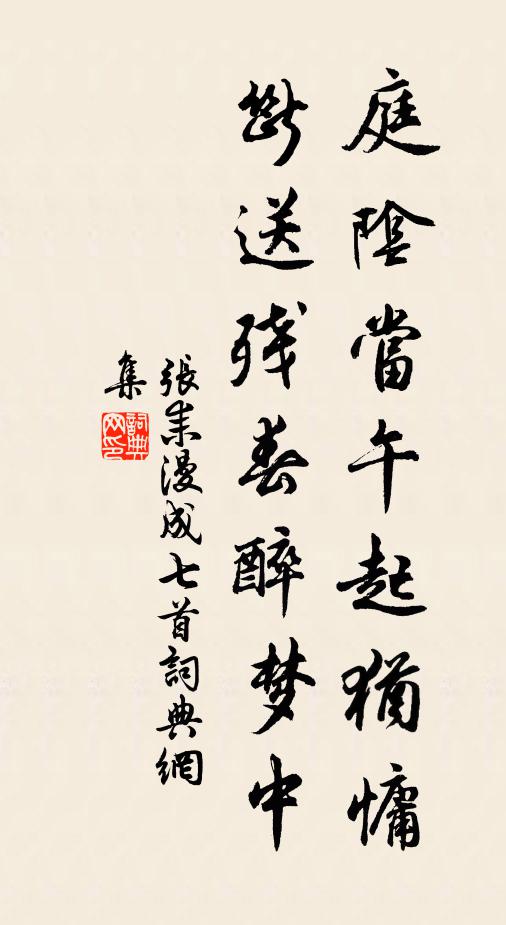 庭陰當午起猶慵
斷送残春醉梦中
張耒漫成七首詞典網
集
詞典
网印